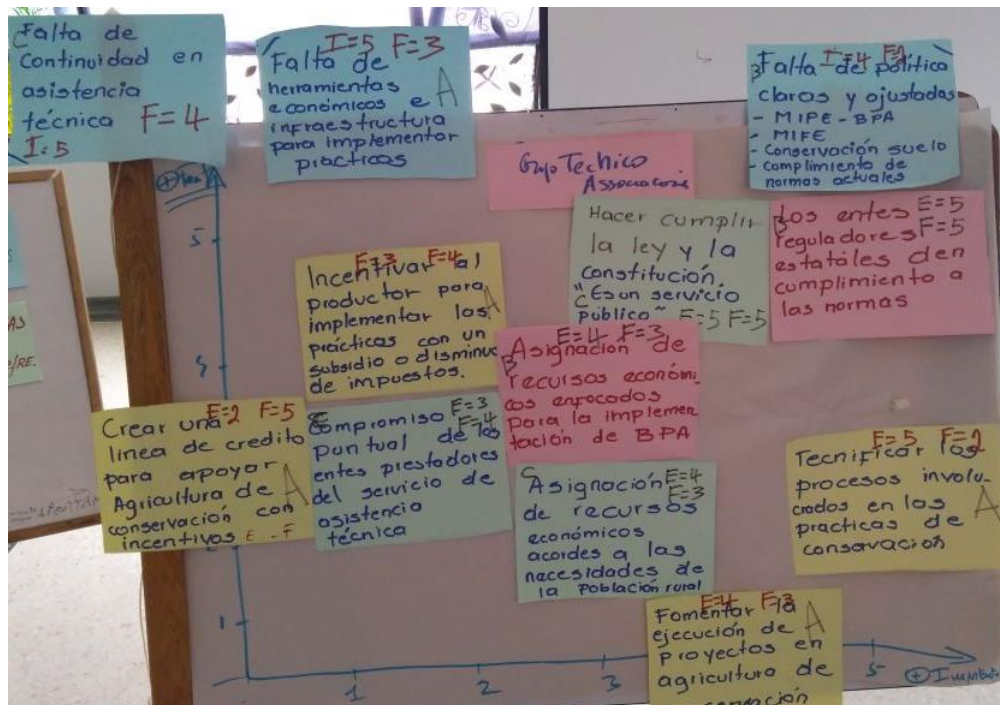 C Falta de
Continuidad en
asistencia
técnica F=4
I=5
I=5 F=3
Falta de
herramientas A
económicos e
infraestructura
para implementar
prácticas
I=4
B Falta de política
claros y ajustadas
- MIPE - BPA
- MIFE
- Conservación suelo
- Cumplimiento de
normas actuales
Grupo Technico
Hacer cumplir
la ley y la
constitución.
C "Es un servicio
público" E=5 F=5
Los entes E=5
B reguladores F=5
estatales den
cumplimiento a
las normas
E=3 F=4
Incentivar al
productor para A
implementar las
prácticas con un
subsidio o disminuc
de impuestos.
E=4 F=3
B Asignación de
recursos económi
cos enfocados
para la implemen
tación de BPA
E=2 F=5
Crear una
linea de credito
para apoyar A
Agricultura de
conservación con
incentivos E - F
Compromiso E=3
puntual de los F=4
entes prestadores
del servicio de
asistencia
técnica
C Asignación E=4
de recursos F=3
económicos
acordes a las
necesidades de
la Población rural
E=5 F=2
Tecnificar los
procesos involu-
crados en las A
practicas de
conservación
E=4 F=3
Fomentar la
ejecución de A
proyectos en
agricultura de
5
4
2
1
1
2
3
5
AS
/RE.